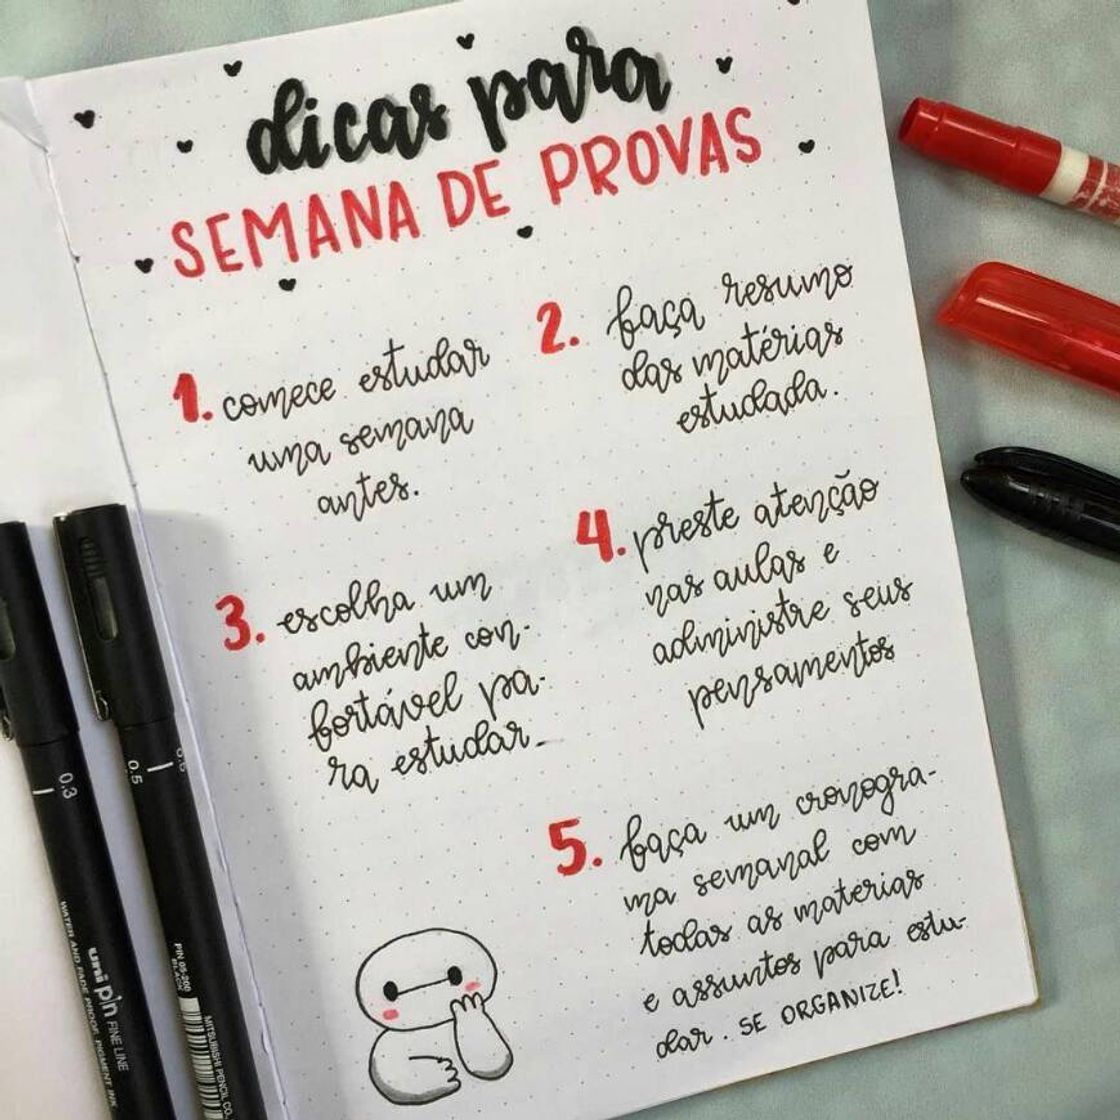 dicas para
SEMANA DE PROVAS
1. comece estudar
uma semana
antes.
2. faça resumo
das matérias
estudada.
3. escolha um
ambiente con-
fortável pa-
ra estudar.
4. preste atenção
nas aulas e
administre seus
pensamentos
5. faça um cronogra-
ma semanal com
todas as materias
e assuntos para estu-
dar. SE ORGANIZE!
0.3
uni pin FINE LINE
WATER AND FADE PROOF, PIGMENT INK
0.5
0.5
PIN 05-200
BLACK
MITSUBISHI PENCIL CO.